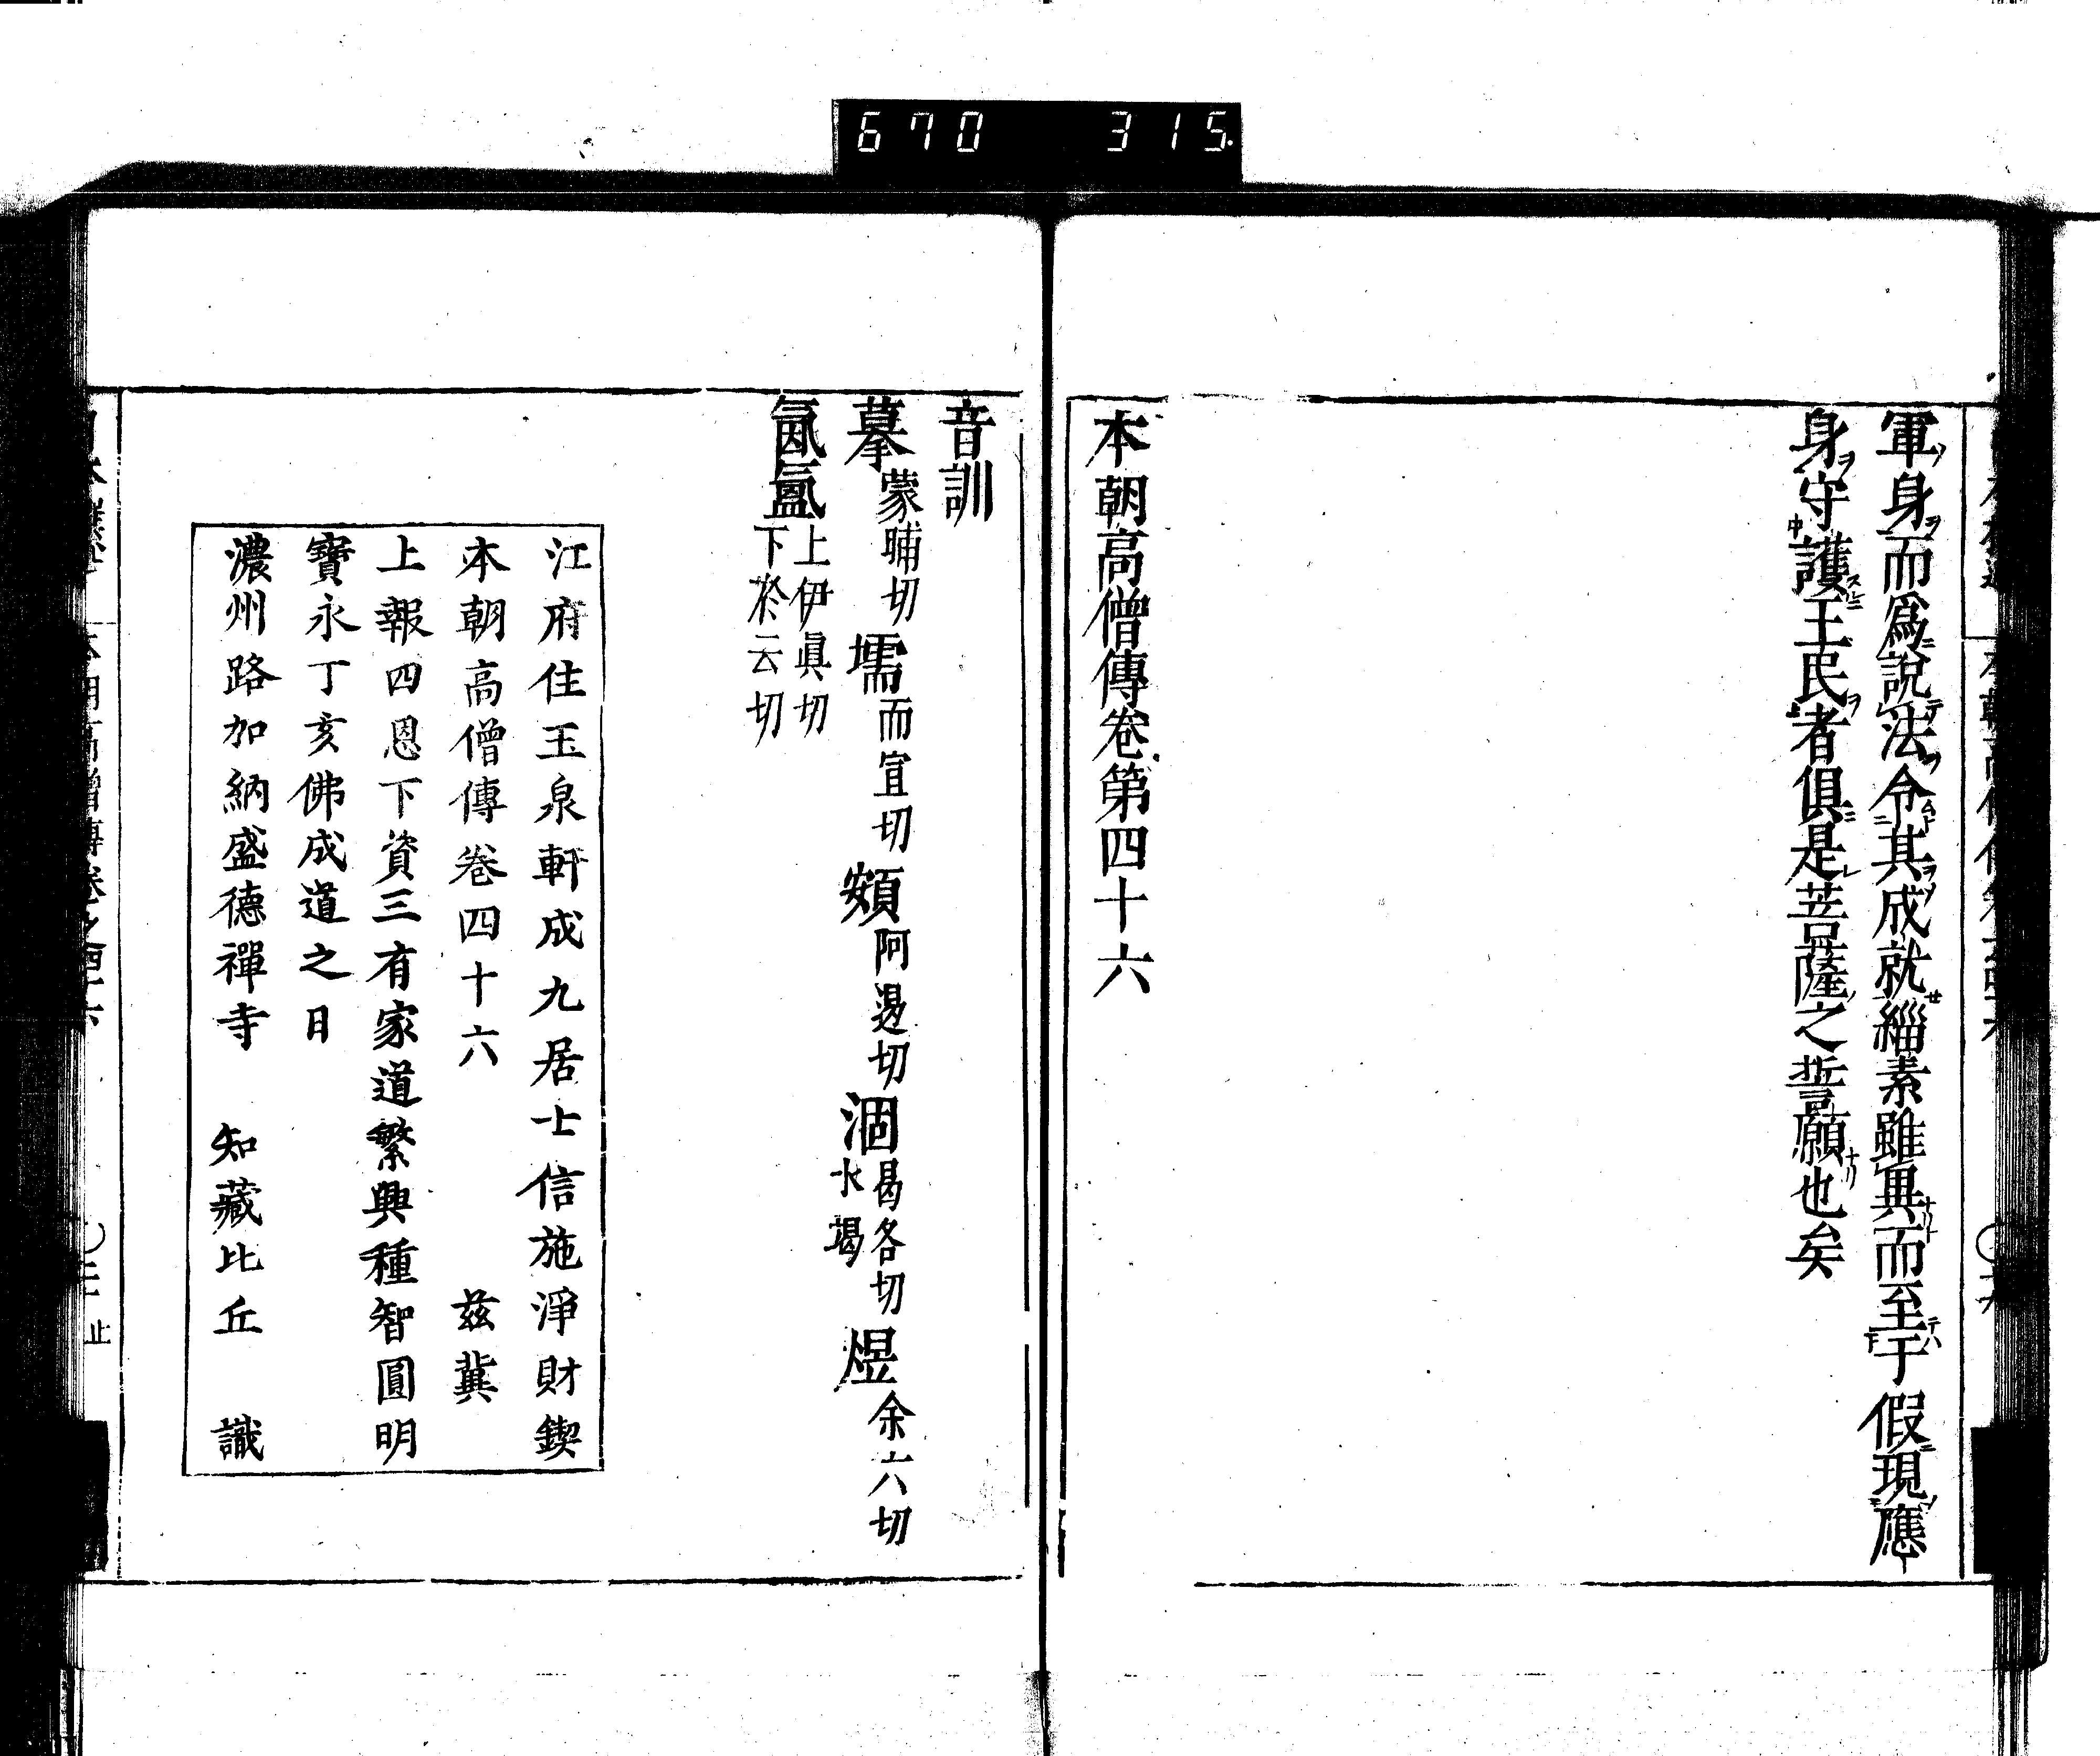 670 315
軍身而爲說法令其成就緇素雖異而至于假現應
身守護王民者俱是菩薩之誓願也矣
本朝高僧傳卷第四十六
音訓
摹蒙晡切 壖而宣切 頞阿遏切 涸曷各切水竭 煜余六切
氤氳上伊眞切下於云切
江府住玉泉軒成九居士信施淨財鍥
本朝高僧傳卷四十六 茲冀
上報四恩下資三有家道繁興種智圓明
寶永丁亥佛成道之日
濃州路加納盛德禪寺 知藏比丘 識